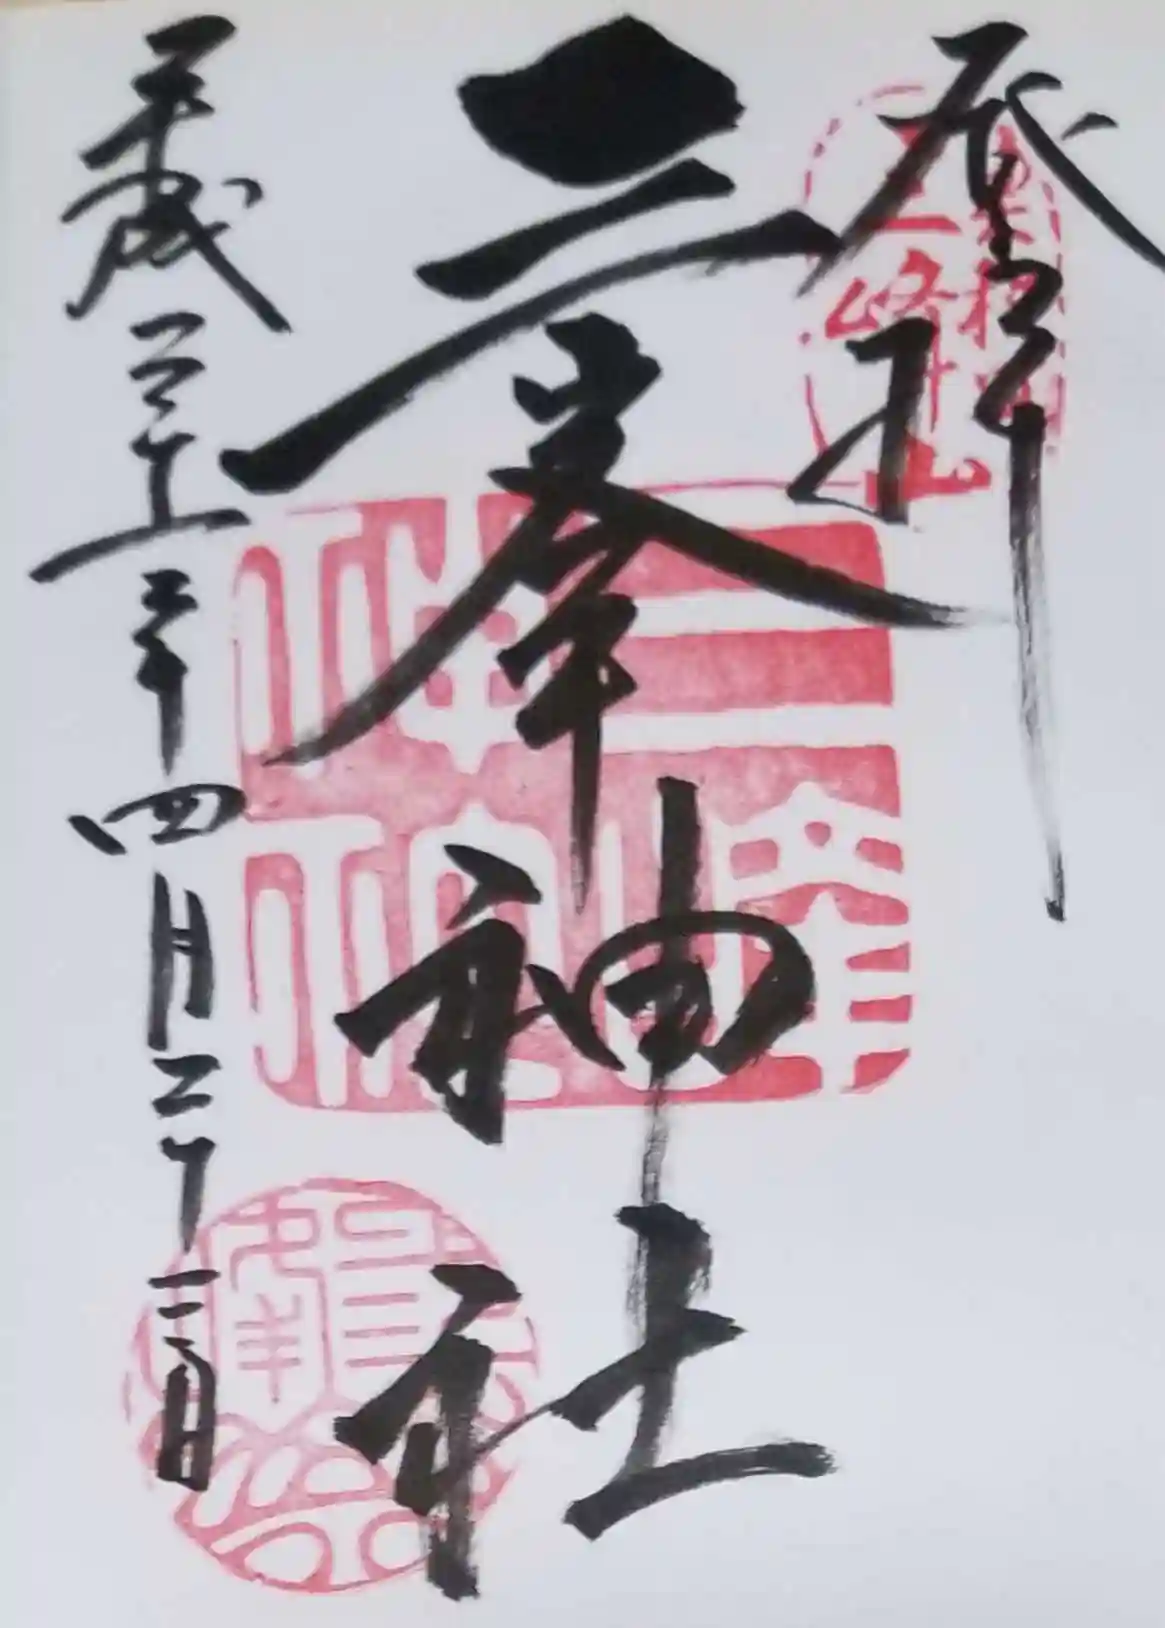 登拝
奥秩父
三峰山
三峯神社
三峯
神社
平成三十一年四月二十三日